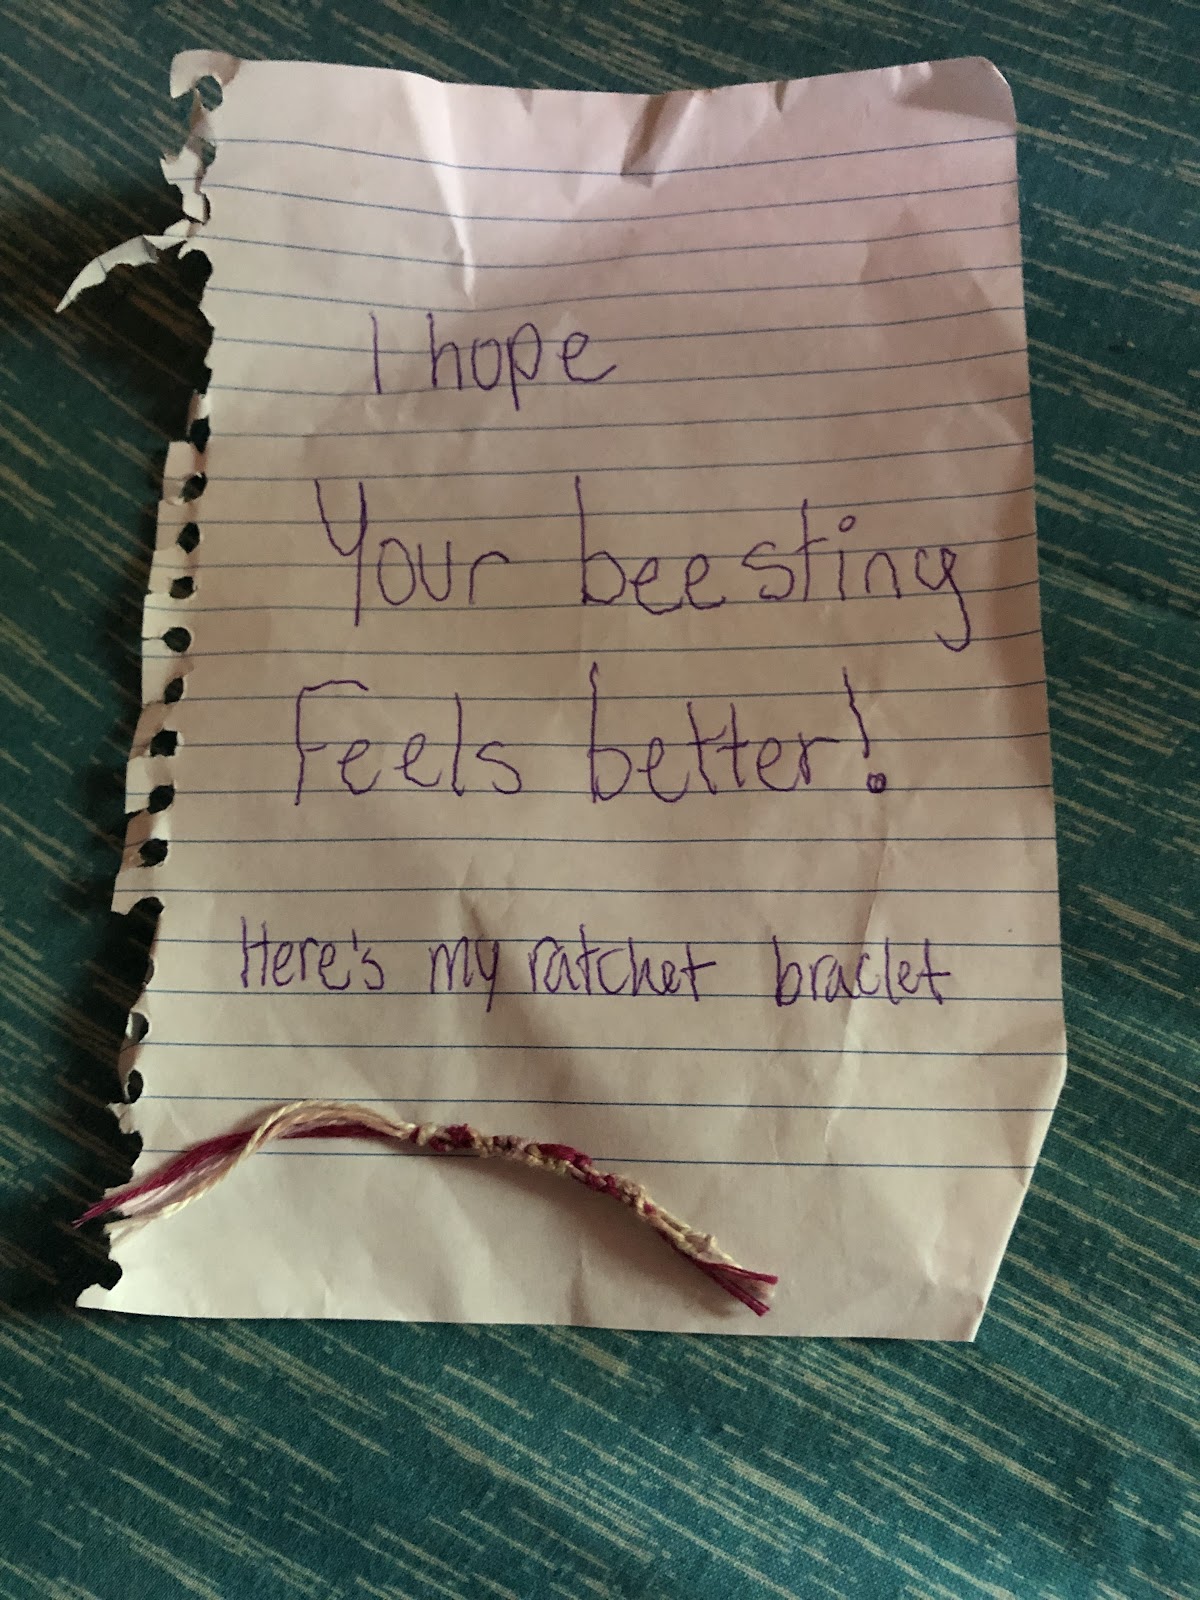 I hope
Your bee sting
Feels better!
Here's my ratchet braclet